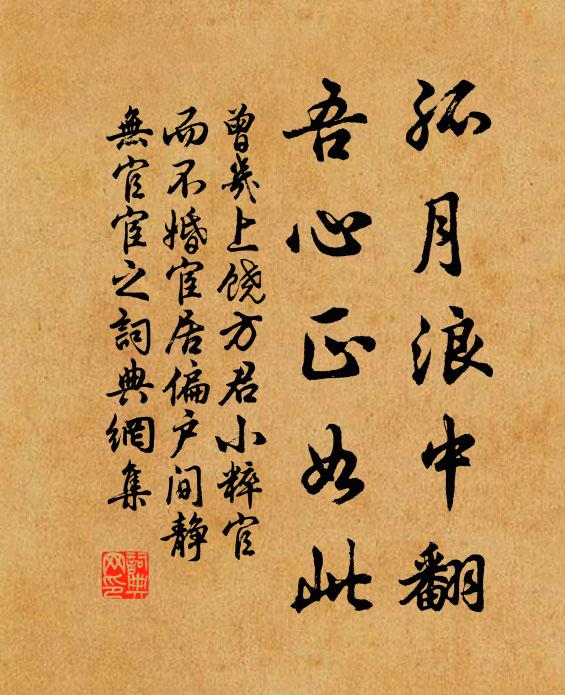 孤月浪中翻
吾心正如此
曾几上饶方君小粹官
而不婚宦居偏户间静
無官宦之詞典網集
詞典网印